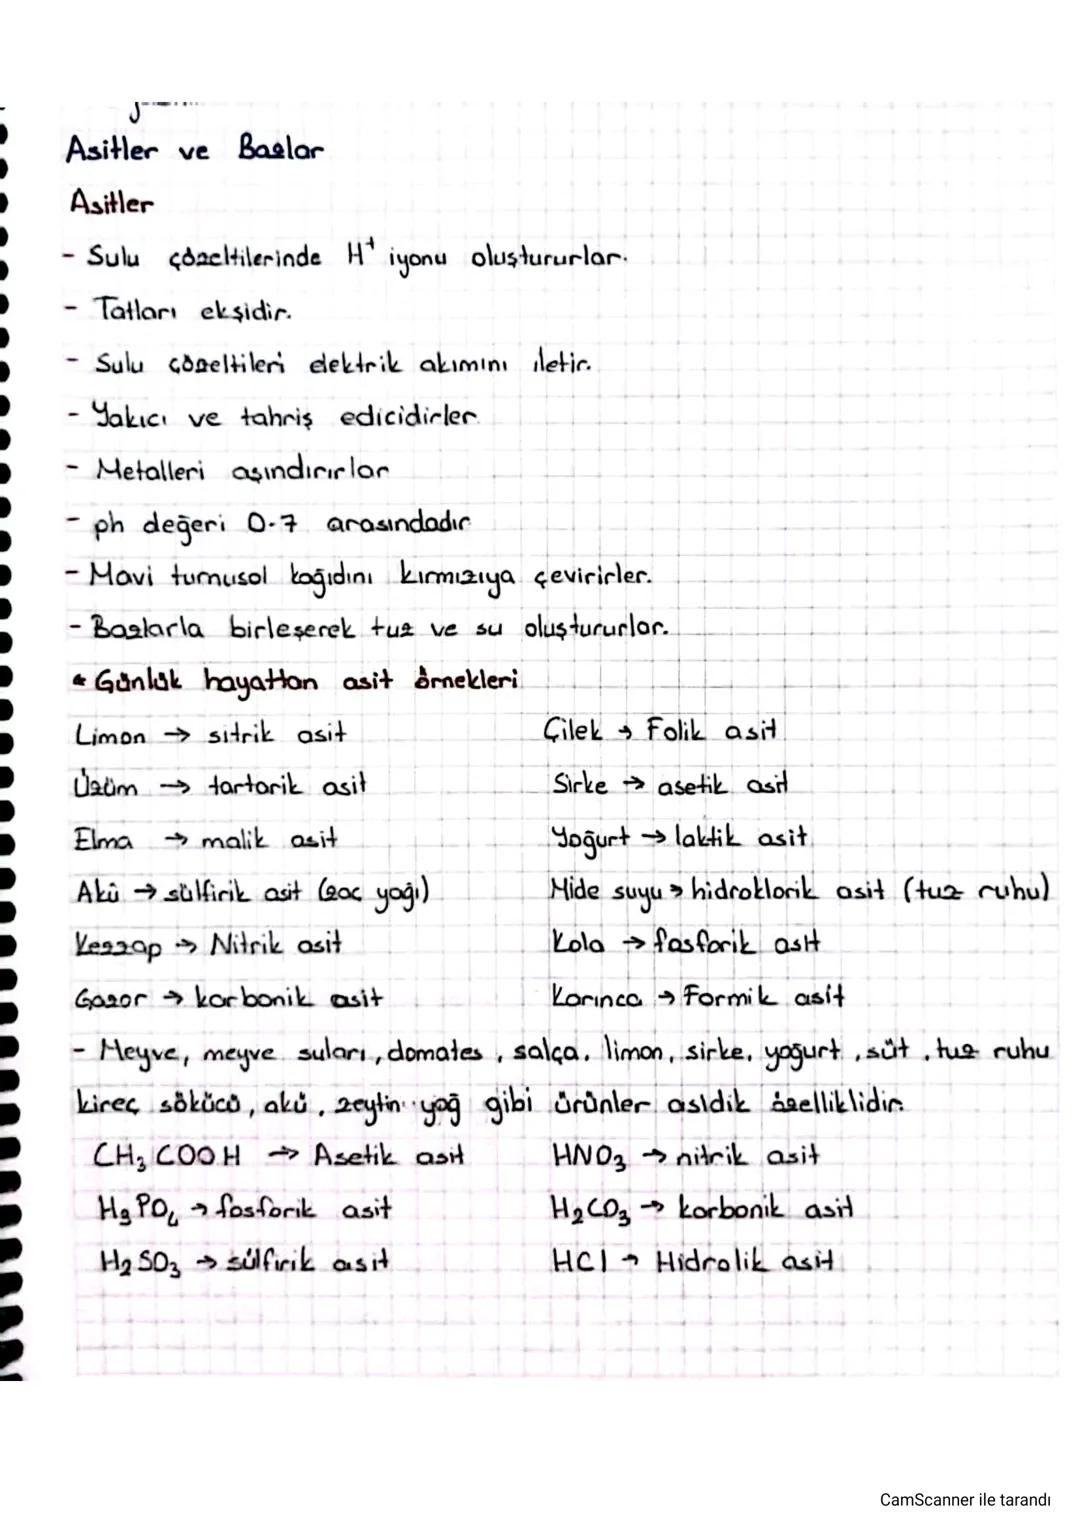 Asitler ve Bazlar
Asitler
- Sulu çözeltilerinde H⁺ iyonu oluştururlar.
- Tatları ekşidir.
- Sulu çözeltileri elektrik akımını iletir.
- Yakıcı ve tahriş edicidirler
- Metalleri aşındırırlar
- ph değeri 0-7 arasındadır
- Mavi turnusol kağıdını kırmızıya çevirirler.
- Bazlarla birleşerek tuz ve su oluştururlar.
* Günlük hayattan asit örnekleri
Limon → sitrik asit Çilek → Folik asit
Üzüm → tartarik asit Sirke → asetik asit
Elma → malik asit Yoğurt → laktik asit
Akü → sülfirik asit (zaç yağı) Mide suyu → hidroklorik asit (tuz ruhu)
Kezzap → Nitrik asit Kola → fosforik asit
Gazor → karbonik asit Karınca → Formik asit
- Meyve, meyve suları, domates, salça, limon, sirke, yoğurt, süt, tuz ruhu
kireç sökücü, akü, zeytin yağ gibi ürünler asidik özelliklidir.
CH₃COOH → Asetik asit HNO₃ → nitrik asit
H₃PO₄ → fosforik asit H₂CO₃ → karbonik asit
H₂SO₃ → sülfirik asit HCl → Hidrolik asit
CamScanner ile tarandı